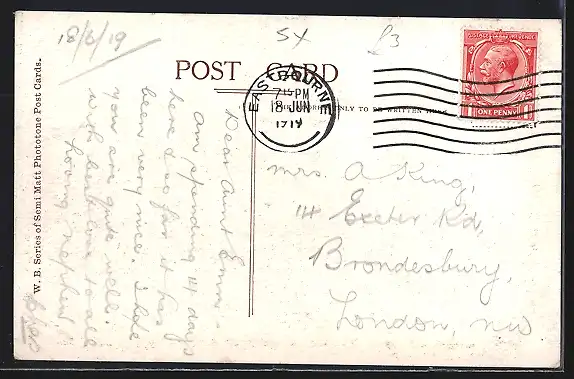 18/6/19
SX
£3
POST CARD
EASTBOURNE
7 15 PM
18 JUN
1919
ONLY TO BE WRITTEN HERE
POSTAGE REVENUE
ONE PENNY
Dear Aunt Emma
Am spending 14 days
here & so far it has
been very nice. I hope
you are quite well.
with best love to all
Loving nephew,
Mrs. A King,
14 Exeter Rd,
Brondesbury,
London, NW
W. B. Series of Semi Matt Phototone Post Cards.